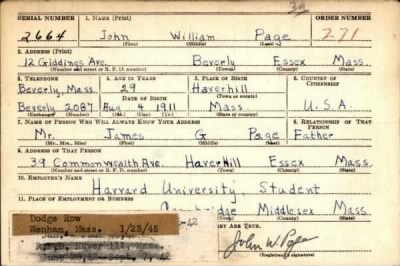 30
SERIAL NUMBER 1. NAME (Print) ORDER NUMBER
2664 John William Page 271
(First) (Middle) (Last)
2. ADDRESS (Print)
12 Giddings Ave. Beverly Essex Mass.
(Number and street or R. F. D. number) (Town) (County) (State)
3. TELEPHONE 4. AGE IN YEARS 5. PLACE OF BIRTH 6. COUNTRY OF CITIZENSHIP
Beverly, Mass. 29 Haverhill
DATE OF BIRTH (Town or county)
Beverly 2087 Aug 4 1911 Mass. U.S.A.
(Exchange) (Number) (Mo.) (Day) (Yr.) (State or country)
7. NAME OF PERSON WHO WILL ALWAYS KNOW YOUR ADDRESS 8. RELATIONSHIP OF THAT PERSON
Mr. James G Page Father
(Mr., Mrs., Miss) (First) (Middle) (Last)
9. ADDRESS OF THAT PERSON
39 Commonwealth Ave. Haverhill Essex Mass.
(Number and street or R. F. D. number) (Town) (County) (State)
10. EMPLOYER'S NAME
Harvard University, Student
11. PLACE OF EMPLOYMENT OR BUSINESS
Middlesex Mass.
Dodge Row
Wenham, Mass. 1/23/45
-42
ARE TRUE.
John W. Page